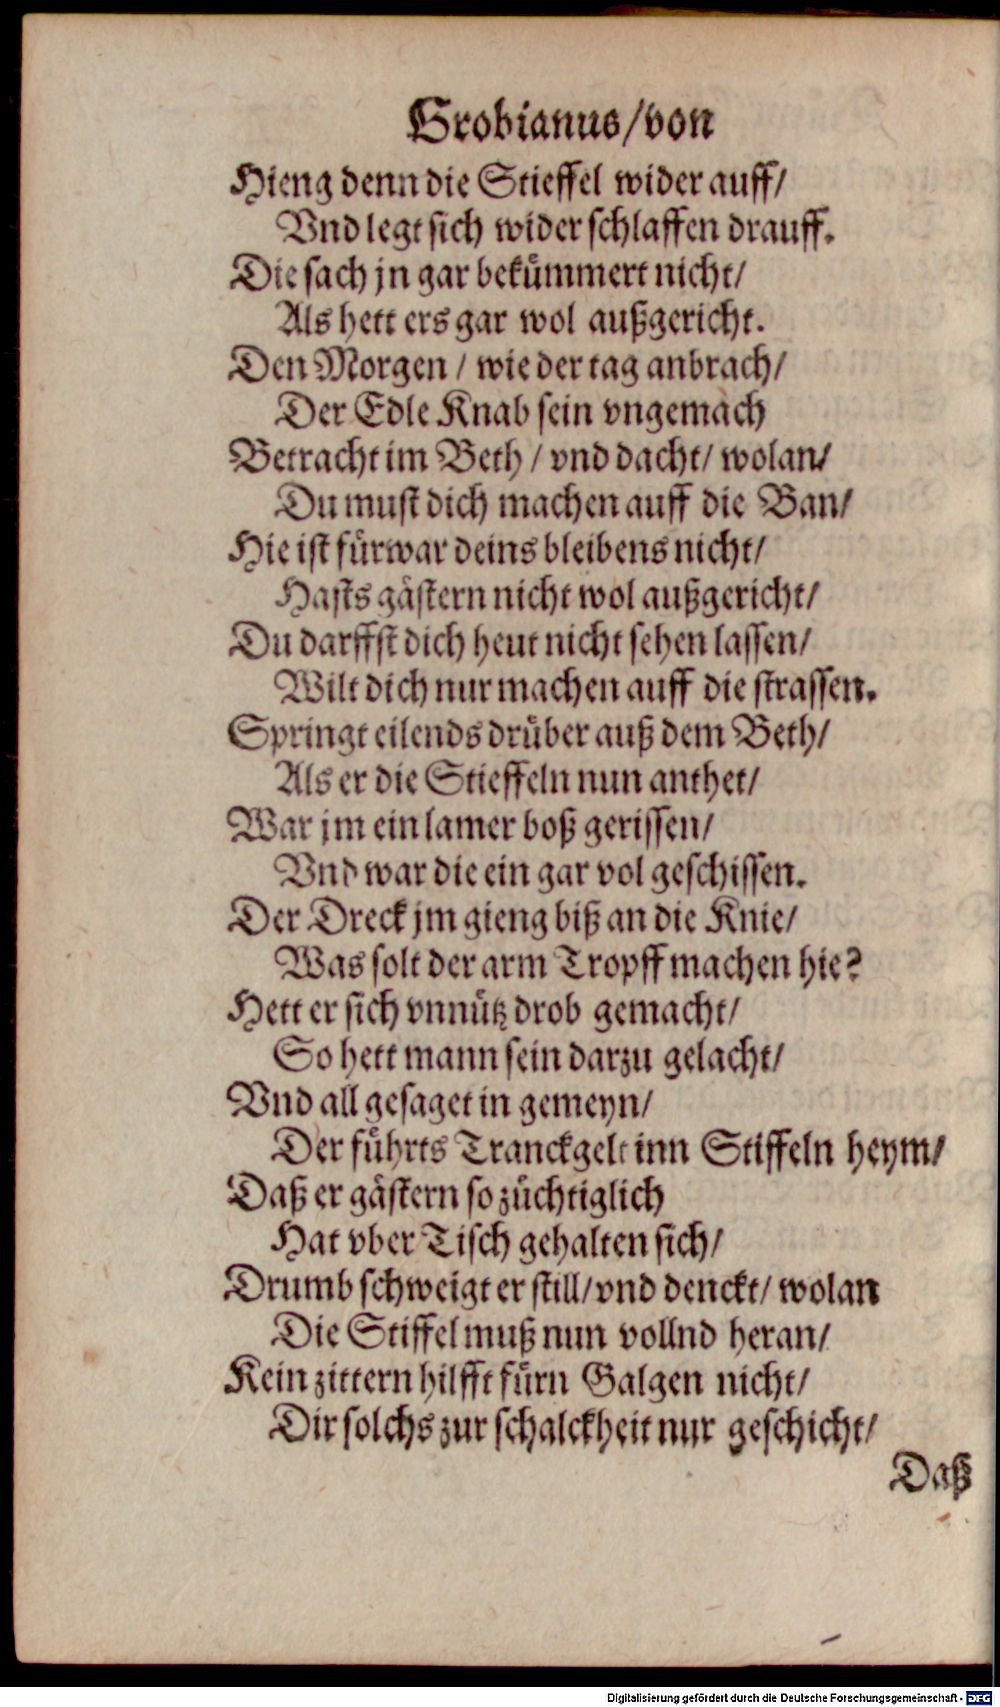 Grobianus/von
Hieng denn die Stieffel wider auff/
Vnd legt sich wider schlaffen drauff.
Die sach jn gar bekümmert nicht/
Als hett ers gar wol außgericht.
Den Morgen / wie der tag anbrach/
Der Edle Knab sein vngemach
Betracht im Beth / vnd dacht/ wolan/
Du must dich machen auff die Ban/
Hie ist fürwar deins bleibens nicht/
Hasts gästern nicht wol außgericht/
Du darffst dich heut nicht sehen lassen/
Wilt dich nur machen auff die strassen.
Springt eilends drüber auß dem Beth/
Als er die Stieffeln nun anthet/
War jm ein lamer boß gerissen/
Vnd war die ein gar vol geschissen.
Der Dreck jm gieng biß an die Knie/
Was solt der arm Tropff machen hie?
Hett er sich vnnütz drob gemacht/
So hett mann sein darzu gelacht/
Vnd all gesaget in gemeyn/
Der führts Tranckgelt inn Stiffeln heym/
Daß er gästern so züchtiglich
Hat vber Tisch gehalten sich/
Drumb schweigt er still/vnd denckt/ wolan
Die Stiffel muß nun vollnd heran/
Kein zittern hilfft fürn Galgen nicht/
Dir solchs zur schalckheit nur geschicht/
Daß
Digitalisierung gefördert durch die Deutsche Forschungsgemeinschaft - DFG